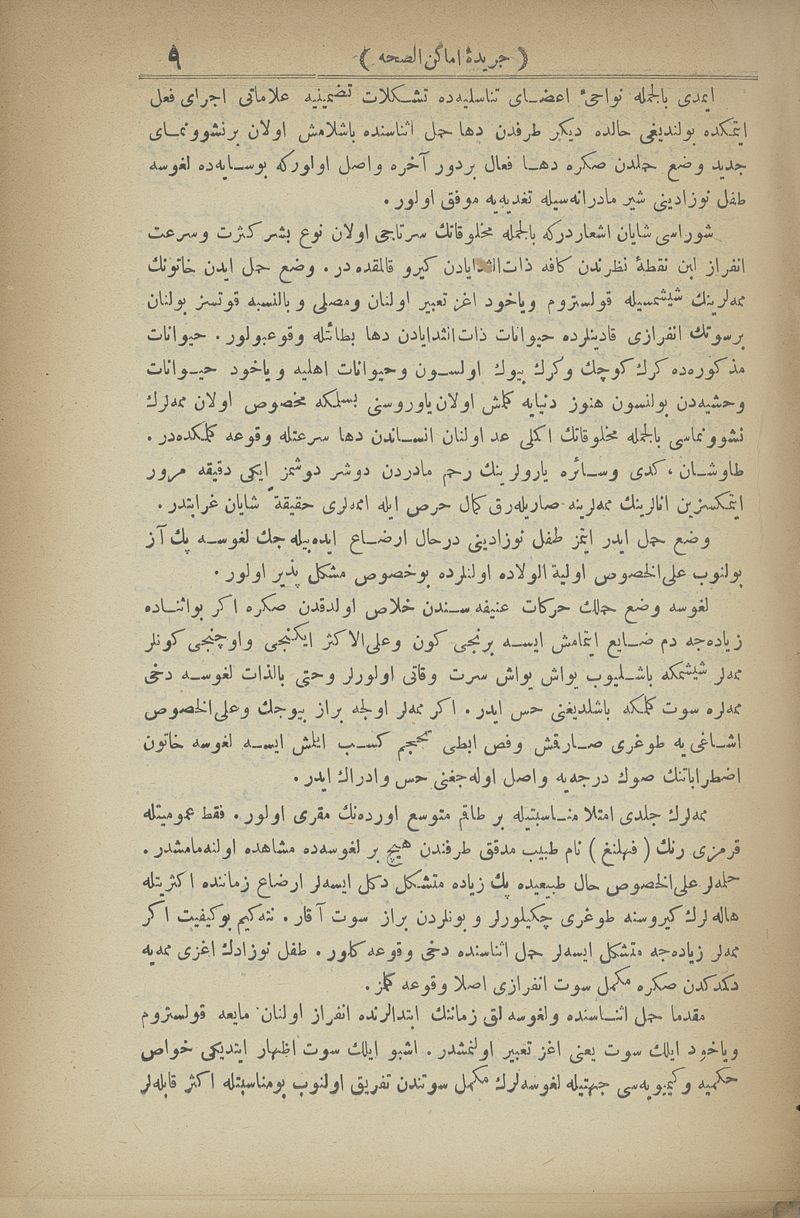 ( جريدۀ اماكن الصحه ) ٩
ايمدى بالجمله نواحىء اعضاى تناسليه‌ده تشكلات تضمينيه علاماتى اجراى فعل
ايتمكده بولنديغى حالده ديكر طرفدن دها حمل اثناسنده باشلامش اولان برنشوونماى
جديد وضع حملدن صكره دها فعال بردور آخره واصل اولوركه بوسايه‌ده لغوسه
طفل نوزادينى شير مادرانه‌سيله تغديه‌يه موفق اولور .
شوراسى شايان اشعاردركه بالجمله مخلوقاتك سرتاجى اولان نوع بشر كثرت وسرعت
انفراز لبن نقطۀ نظرندن كافه ذات‌الثدايادن كيرو قالمقده در . وضع حمل ايدن خاتونك
ممه‌لرينك شيشمسيله قولستروم وياخود اغز تعبير اولنان ومصلى و بالنسبه قوتسز بولنان
برسوتك انفرازى قادينلرده حيوانات ذات‌الثدايادن دها بطائتله وقوعبولور . حيوانات
مذكوره‌ده كرك كوچك وكرك بيوك اولسون وحيوانات اهليه و ياخود حيوانات
وحشيه‌دن بولنسون هنوز دنيايه كلمش اولان ياوروسنى بسلمكه مخصوص اولان ممه‌لرك
نشوونماسى بالجمله مخلوقاتك اكملى عد اولنان انساندن دها سرعتله وقوعه كلمكده‌در .
طاوشان ، كدى وسائره ياورولرينك رحم مادردن دوشر دوشمز ايكى دقيقه مرور
ايتمكسزين انالرينك ممه‌لرينه صاريله‌رق كمال حرص ايله اممه‌لرى حقيقةً شايان غرابتدر .
وضع حمل ايدر ايتمز طفل نوزادينى درحال ارضاع ايده‌بيله‌جك لغوسه پك آز
بولنوب على‌الخصوص اولية الولاده اولنلرده بوخصوص مشكل پذير اولور .
لغوسه وضع حملك حركات عنيفه سندن خلاص اولدقدن صكره اكر بواثناده
زياده‌جه دم ضايع ايتمامش ايسه برنجى كون وعلى‌الاكثر ايكنجى واوچنجى كونلر
ممه‌لر شيشمكه باشليوب يواش يواش سرت وقاتى اولورلر وحتى بالذات لغوسه دخى
ممه‌لره سوت كلمكه باشلديغنى حس ايدر . اكر ممه‌لر اولجه براز بيوجك وعلى‌الخصوص
اشاغى‌يه طوغرى صارقمش وفص ابطى تحجم كسب ايلمش ايسه لغوسه خاتون
اضطراباتنك صوك درجه‌يه واصل اوله‌جغنى حس وادراك ايدر .
ممه‌لرك جلدى امتلا مناسبتيله بر طاقم متوسع اورده‌نك مقرى اولور . فقط عموميتله
قرمزى رنك ( فهلنغ ) نام طبيب مدقق طرفندن هيچ بر لغوسه‌ده مشاهده اولنه‌مامشدر .
حلمه‌لر على‌الخصوص حال طبيعيده پك زياده متشكل دكل ايسه‌لر ارضاع زماننده اكثريتله
هاله‌لرك كيروسنه طوغرى چكيلورلر و بونلردن براز سوت آقار . نته‌كيم بوكيفيت اكر
ممه‌لر زياده‌جه متشكل ايسه‌لر حمل اثناسنده دخى وقوعه كلور . طفل نوزادك اغزى ممه‌يه
دكدكدن صكره مكمل سوت انفرازى اصلا وقوعه كلمز .
مقدما حمل اثناسنده ولغوسه لق زماننك ابتدالرنده انفراز اولنان مايعه قولستروم
وياخود ايلك سوت يعنى اغز تعبير اولنمشدر . اشبو ايلك سوت اظهار ايتديكى خواص
حكميه وكيمويه‌سى جهتيله لغوسه‌لرك مكمل سوتندن تفريق اولنوب بومناسبتله اكثر قابله‌لر